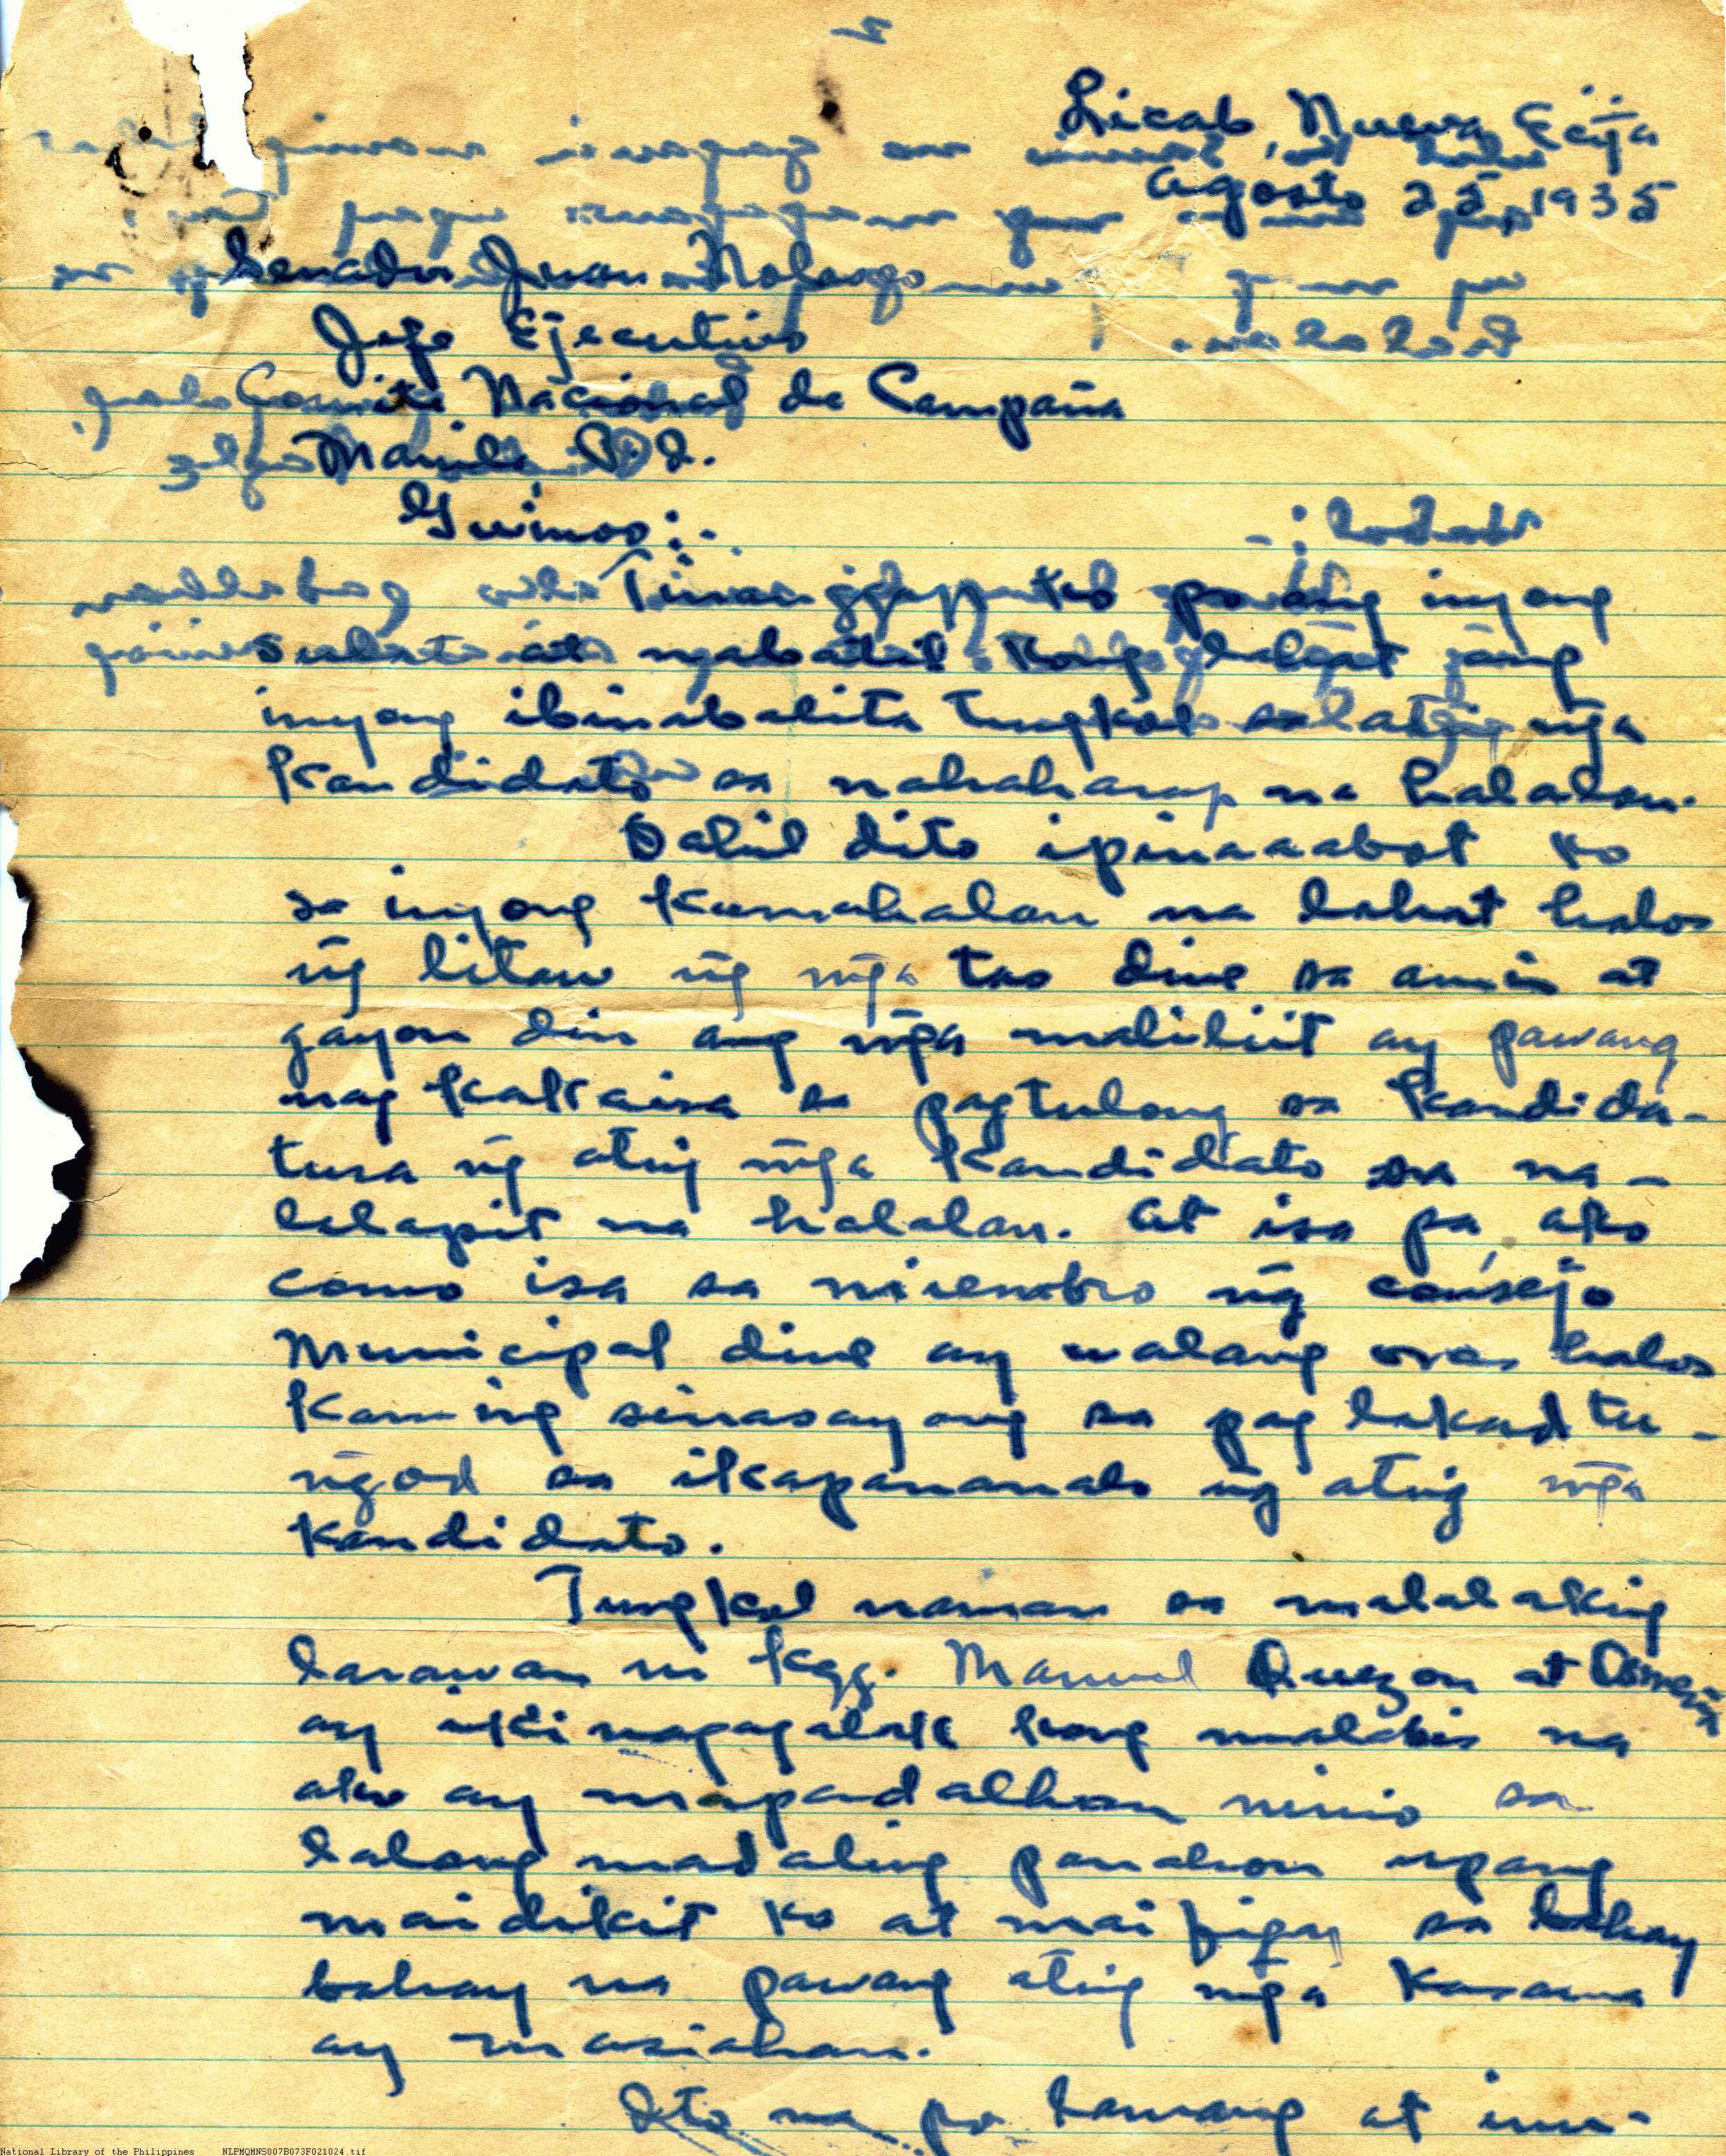 Licab, Nueva Ecija
Agosto 25 1935
Senador Juan Nolasco
Jefe Ejecutivo
Comite Nacional de Campaña
Manila, P.I.
Guinoo:-
Tinanggap ko po ang inyong
sulat at nabatid kong lahat yang
inyong ibinabalita tungkol sa ating mga
Kandidato sa nahaharap na halalan.
Dahil dito ipinaaabot ko
sa inyong Kamahalan na lahat halos
ng litaw ng mga tao dine sa amin at
gayon din ang mga maliliit ay pawang
nag kakaisa sa pagtulong sa Kandida-
tura ng ating mga Kandidato sa na-
lalapit na halalan. At isa pa, ako
como isa sa miembro ng consejo
Municipal dine ay walang oras halos
kaming sinasayang sa pag lakad tu-
ngod sa ikapananalo ng ating mga
Kandidato.
Tungkol naman sa malalaking
larawan ni Kgg. Manuel Quezon at Osmeña
ay ikinagagalak kong malabis na
ako ay mapadalhan ninio sa
lalong madaling panahon upang
maidikit ko at maibigay sa bahay
bahay na pawang ating mga Kasama
ay masiahan.
Ito na po lamang at inu-
National Library of the Philippines NLPMQMNS007B073F021024.tif